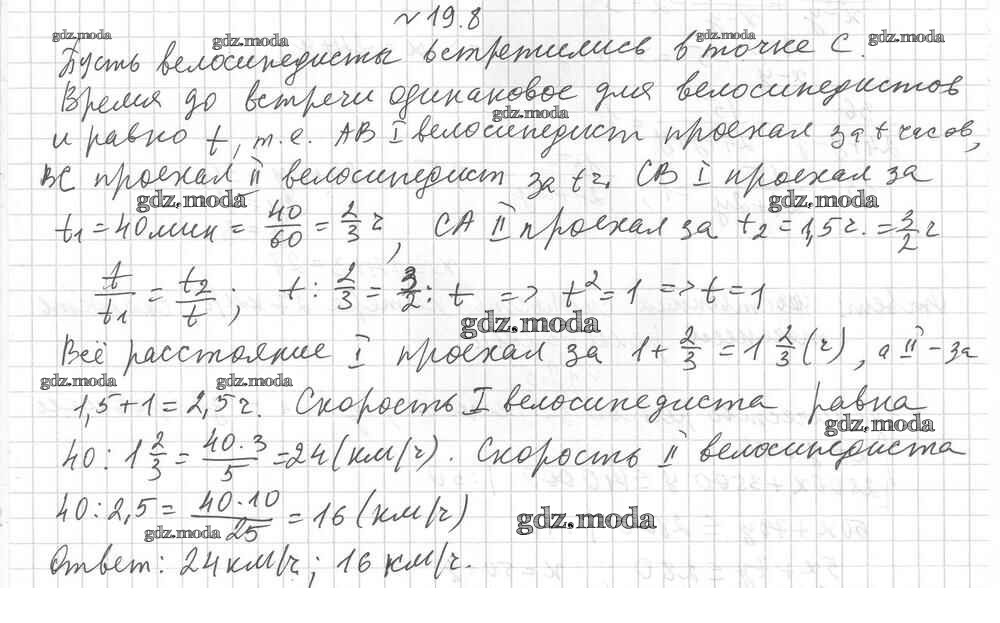 №19.8
gdz.moda gdz.moda gdz.moda gdz.moda
Пусть велосипедисты встретились в точке С.
Время до встречи одинаковое для велосипедистов
gdz.moda
и равно t, т.е. АВ I велосипедист проехал за t часов,
ВС проехал II велосипедист за t ч. СВ I проехал за
gdz.moda gdz.moda
t₁ = 40 мин = 40/60 = 2/3 ч, СА II проехал за t₂ = 1,5 ч. = 3/2 ч
t/t₁ = t₂/t; t : 2/3 = 3/2 : t => t² = 1 => t = 1
gdz.moda
Всё расстояние I проехал за 1 + 2/3 = 1 2/3 (ч), а II - за
gdz.moda gdz.moda
1,5 + 1 = 2,5 ч. Скорость I велосипедиста равна
gdz.moda
40 : 1 2/3 = 40·3/5 = 24 (км/ч). Скорость II велосипедиста
40 : 2,5 = 40·10/25 = 16 (км/ч)
gdz.moda gdz.moda
Ответ: 24 км/ч; 16 км/ч.